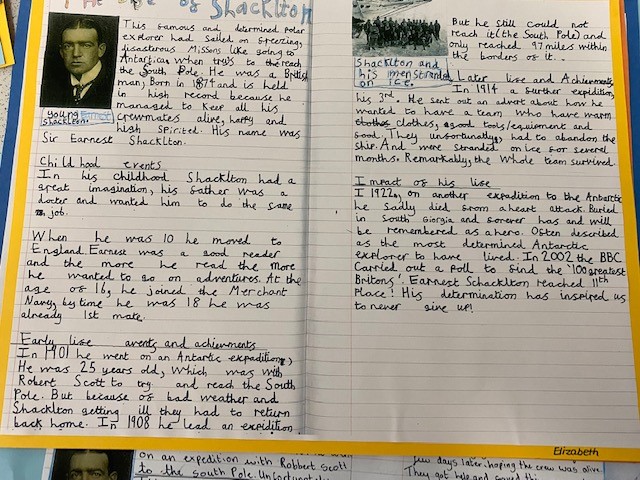 The Life of Shacklton
This famous and determined polar
explorer had sailed on freezing,
disasterous Missons like going to
Antartica when trys to the reach
the South Pole. He was a British
man, Born in 1874 and is held
in high record because he
managed to keep all his
crewmates alive, happy and
high spirited. His name was
Sir Earnest Shacklton.
young Ernest
Shackleton.
Childhood events
In his childhood Shacklton had a
great imagination, his father was a
docter and wanted him to do the same
job.
When he was 10 he moved to
England. Earnest was a good reader
and the more he read the more
he wanted to go on adventures. At the
age of 16, he joined the Merchant
Navy, by time he was 18 he was
already 1st mate.
Early life avents and acheivments
In 1901 he went on an Antartic expadition,
He was 25 years old, which was with
Robert Scott to try and reach the South
Pole. But because of bad weather and
Shacklton getting ill they had to return
back home. In 1908 he lead an expidition
Shacklton and
his men strande
on ice.
But he still could not
reach it (the South Pole) and
only reached 97 miles within
the borders of it.
Later life and Achievments
In 1914 a further expidition,
his 3rd. He sent out an advert about how he
wanted to have a team who have warm
clothes clothes, good tools/equipment and
food. They unfortunatly had to abandon the
ship. And were stranded on ice for several
months. Remarkably, the whole team survived.
Impact of his life
I 1922, on another expadition to the Antartic
he sadly died from a heart attack. Buried
in South Giorgia and forever has and will
be remembered as a hero. Often described
as the most determined Antarctic
explorer to have lived. In 2002 the BBC
Carried out a poll to find the '100 greatest
Britons'. Earnest Schacklton reached 11th
Place! His determination has inspired us
to never give up!
Elizabeth
on an expedition with Robbert Scott
to the South Pole. Unfortunat
few days later, hoping the crew was alive.
They got help and saved this